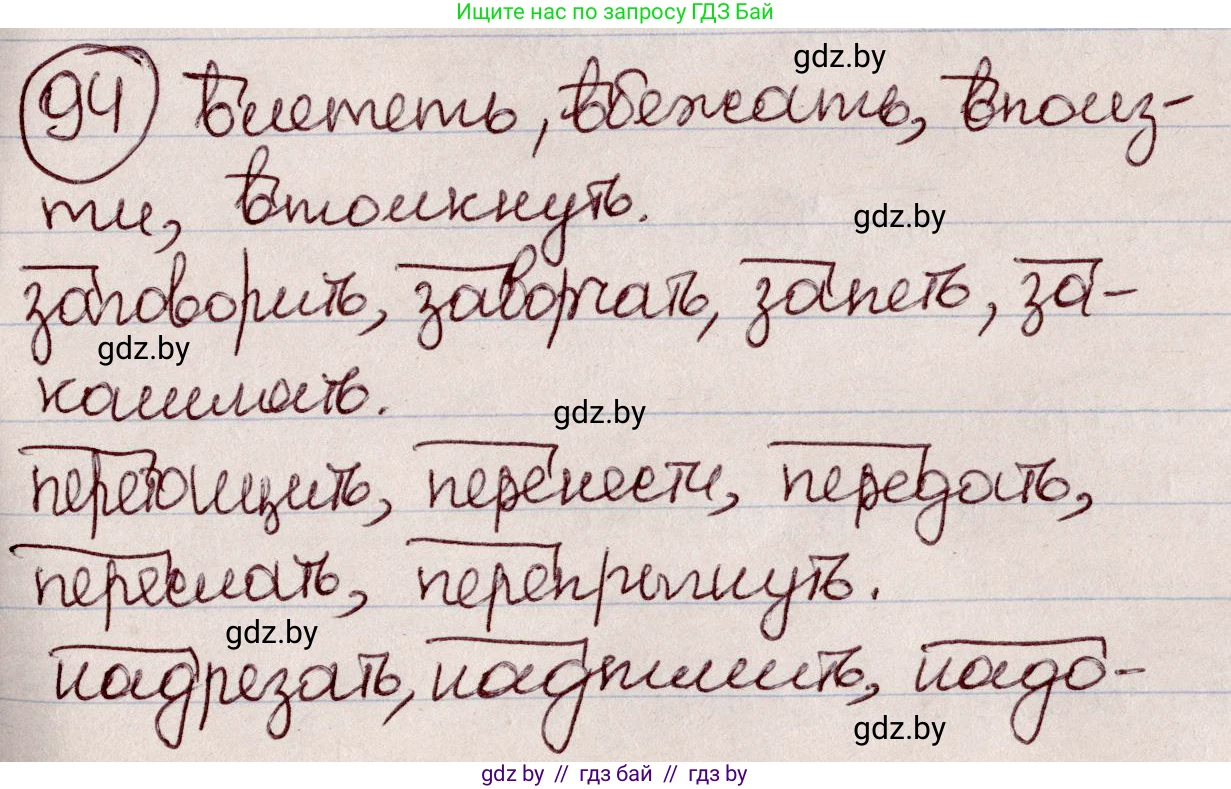 Ищите нас по запросу ГДЗ Бай
gdz.by
94 влететь, вбежать, вполз-
ти, втолкнуть.
gdz.by
заговорить, заворчать, запеть, за-
gdz.by
кашлять.
gdz.by
перетащить, перенести, передать,
переслать, перепрыгнуть.
gdz.by
надрезать, надпилить, надо-
gdz.by
gdz by // гдз бай // gdz by